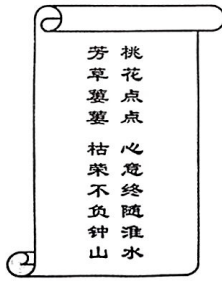 桃花点点 心意终随淮水
芳草萋萋 枯荣不负钟山